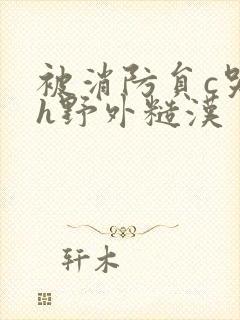 被消防负c哭
h野外糙漢
轩木